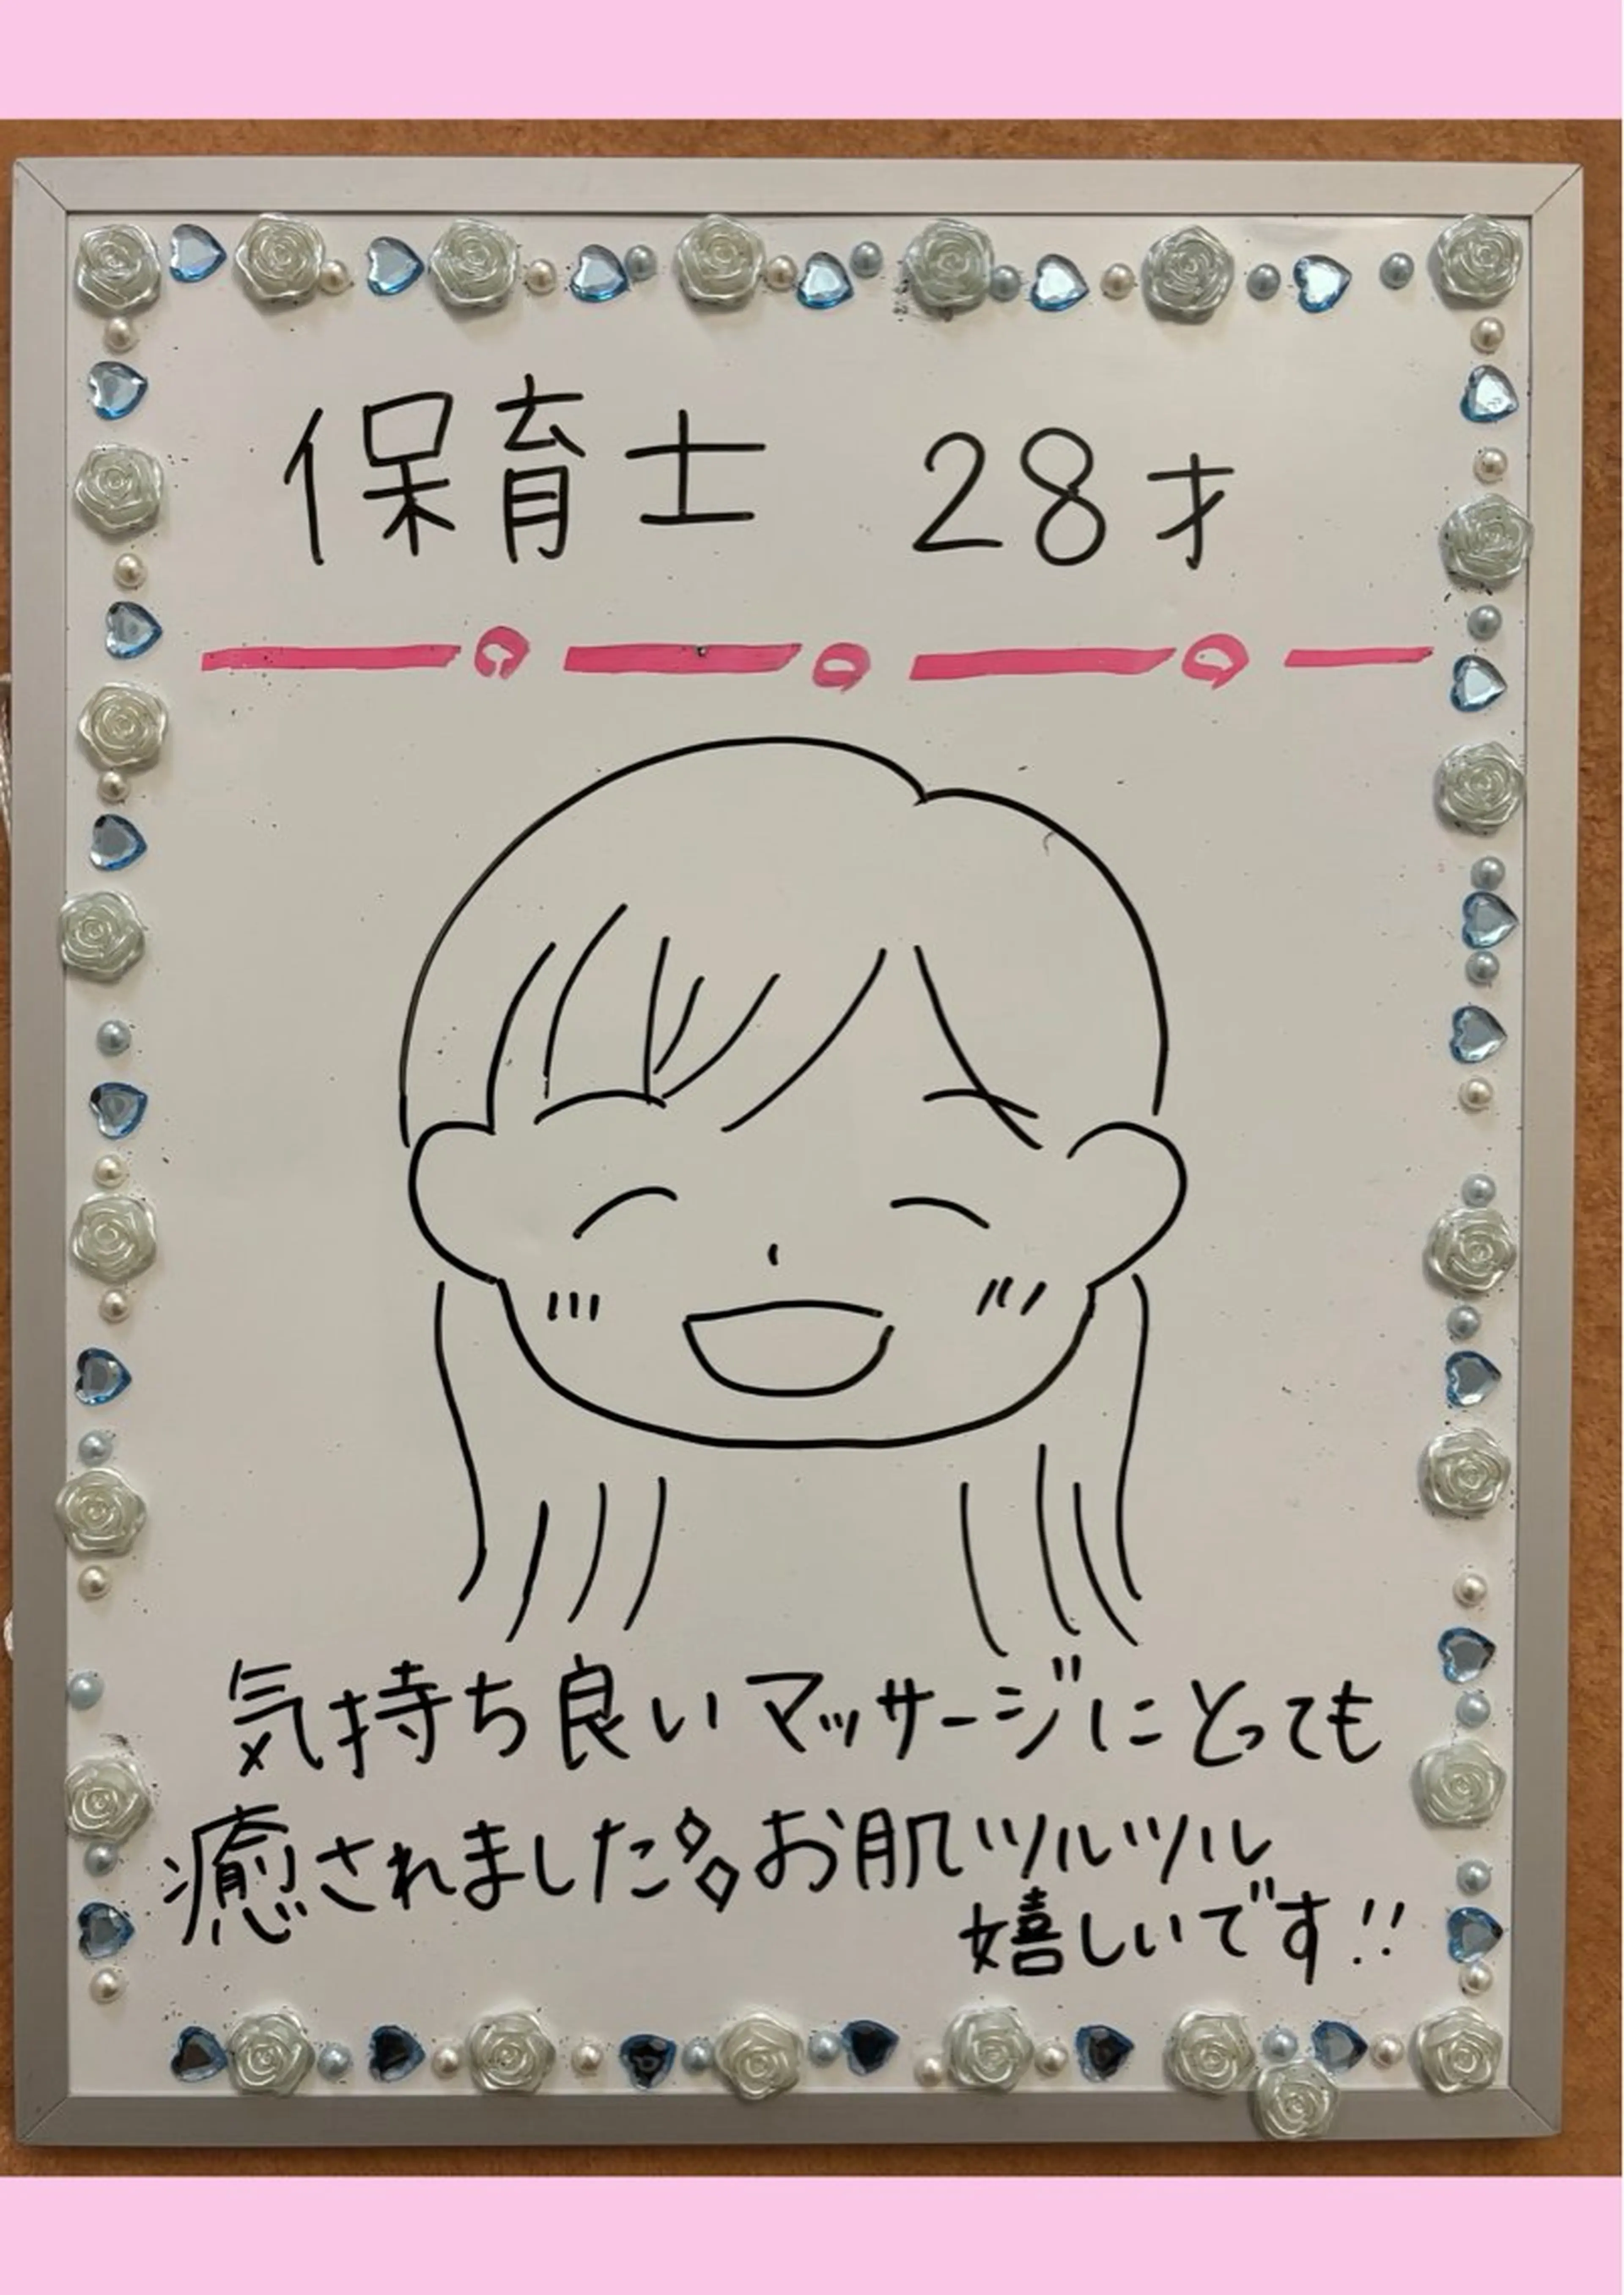 保育士 28才
気持ち良いマッサージにとっても
癒されました お肌ツルツル
嬉しいです!!